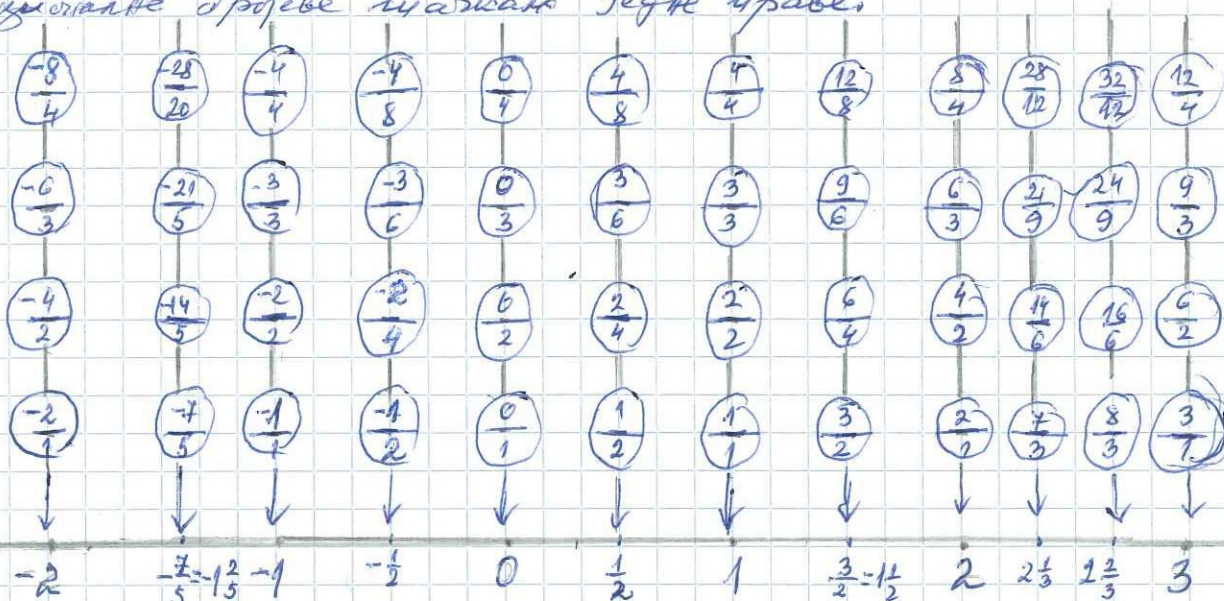 бројеве тачкама једне праве.
-8/4 -28/20 -4/4 -4/8 0/4 4/8 4/4 12/8 8/4 28/12 32/12 12/4
-6/3 -21/5 -3/3 -3/6 0/3 3/6 3/3 9/6 6/3 21/9 24/9 9/3
-4/2 -14/5 -2/2 -2/4 0/2 2/4 2/2 6/4 4/2 14/6 16/6 6/2
-2/1 -7/5 -1/1 -1/2 0/1 1/2 1/1 3/2 2/1 7/3 8/3 3/1
-2 -7/5=-1 2/5 -1 -1/2 0 1/2 1 3/2=1 1/2 2 2 1/3 2 2/3 3